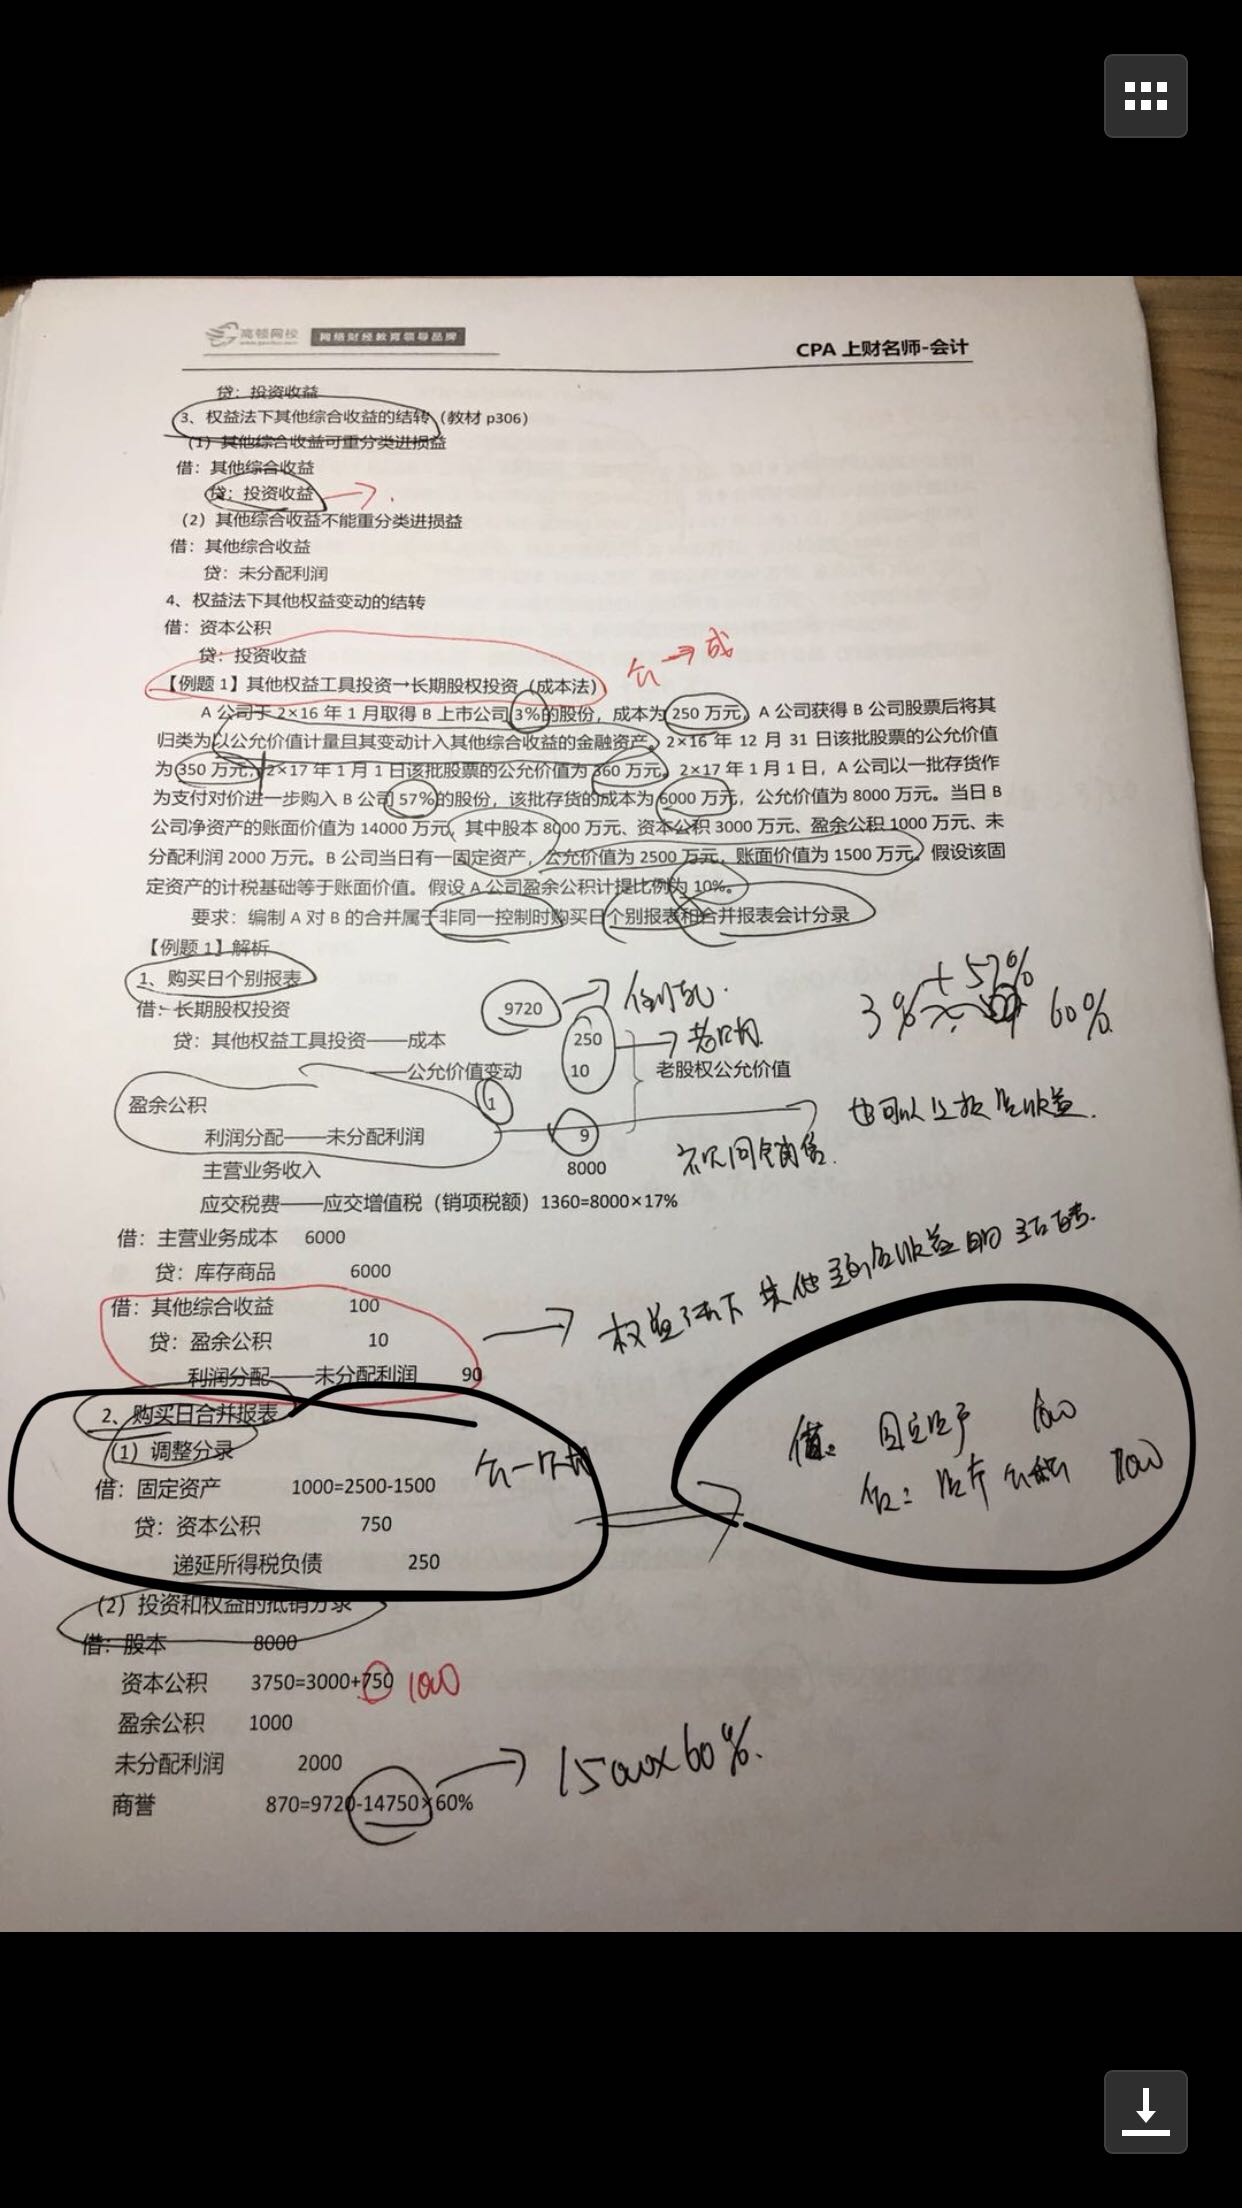 高顿网校 网络财经教育领导品牌
CPA 上财名师-会计
贷：投资收益
3、权益法下其他综合收益的结转（教材 p306）
（1）其他综合收益可重分类进损益
借：其他综合收益
贷：投资收益
（2）其他综合收益不能重分类进损益
借：其他综合收益
贷：未分配利润
4、权益法下其他权益变动的结转
借：资本公积
贷：投资收益
公→成
【例题 1】其他权益工具投资→长期股权投资（成本法）
A 公司于 2×16 年 1 月取得 B 上市公司 3%的股份，成本为 250 万元，A 公司获得 B 公司股票后将其
归类为以公允价值计量且其变动计入其他综合收益的金融资产。2×16 年 12 月 31 日该批股票的公允价值
为 350 万元，2×17 年 1 月 1 日该批股票的公允价值为 360 万元。2×17 年 1 月 1 日，A 公司以一批存货作
为支付对价进一步购入 B 公司 57%的股份，该批存货的成本为 6000 万元，公允价值为 8000 万元。当日 B
公司净资产的账面价值为 14000 万元，其中股本 8000 万元、资本公积 3000 万元、盈余公积 1000 万元、未
分配利润 2000 万元。B 公司当日有一固定资产，公允价值为 2500 万元，账面价值为 1500 万元。假设该固
定资产的计税基础等于账面价值。假设 A 公司盈余公积计提比例为 10%。
要求：编制 A 对 B 的合并属于非同一控制时购买日个别报表和合并报表会计分录
【例题 1】解析
1、购买日个别报表
3% + 57% 60%
借：长期股权投资 9720 → 倒轧.
贷：其他权益工具投资——成本 250
——公允价值变动 10 老股权公允价值
盈余公积 1
也可以
利润分配——未分配利润 9
主营业务收入 8000
应交税费——应交增值税（销项税额）1360=8000×17%
借：主营业务成本 6000
贷：库存商品 6000
借：其他综合收益 100
→ 权益法下其他综合收益的结转.
贷：盈余公积 10
利润分配——未分配利润 90
2、购买日合并报表
（1）调整分录
借：固定资产 1000=2500-1500
借：固定资产 1000
贷：资本公积 750
贷：资本公积 1000
递延所得税负债 250
（2）投资和权益的抵销分录
借：股本 8000
资本公积 3750=3000+750 1000
盈余公积 1000
未分配利润 2000
→ 15000×60%.
商誉 870=9720-14750×60%